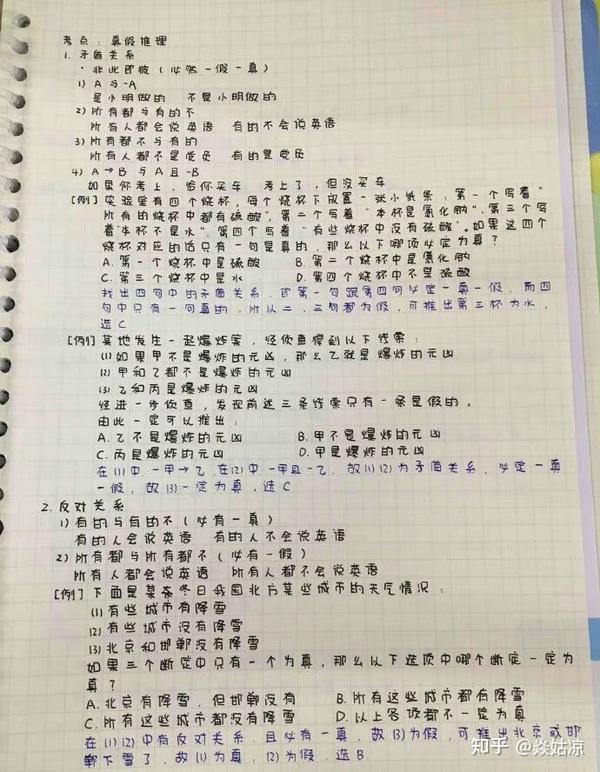 考点：真假推理
1. 矛盾关系
·非此即彼（必然一假一真）
1) A与-A
是小明做的 不是小明做的
2) 所有都与有的不
所有人都会说英语 有的不会说英语
3) 所有都不与有的
所有人都不是党员 有的是党员
4) A→B 与 A且-B
如果你考上，给你买车 考上了，但没买车
[例] 实验室有四个烧杯，每个烧杯下放置一张小纸条：第一个写着“
所有的烧杯中都有硫酸”，第二个写着“本杯是氯化钠”，第三个写
着“本杯不是水”，第四个写着“有些烧杯中没有硫酸”。如果这四个
烧杯对应的话只有一句是真的，那么以下哪项必定为真？
A. 第一个烧杯中是硫酸 B. 第二个烧杯中是氯化钠
C. 第三个烧杯中是水 D. 第四个烧杯中不是硫酸
找出四句中的矛盾关系，即第一句跟第四句必定一真一假，而四
句中只有一句为真的，所以二、三句都为假，可推出第三杯为水，
选C
[例] 某地发生一起爆炸案，经侦查得到以下线索：
(1) 如果甲不是爆炸的元凶，那么乙就是爆炸的元凶
(2) 甲和乙都不是爆炸的元凶
(3) 乙和丙是爆炸的元凶
经进一步侦查，发现前述三条线索只有一条是假的。
由此一定可以推出：
A. 乙不是爆炸的元凶 B. 甲不是爆炸的元凶
C. 丙是爆炸的元凶 D. 甲是爆炸的元凶
在(1)中，一甲→乙，在(2)中一甲且一乙，故(1)(2)为矛盾关系，必定一真
一假，故(3)一定为真，选C
2. 反对关系
1) 有的与有的不（必有一真）
有的人会说英语 有的人不会说英语
2) 所有都与所有都不（必有一假）
所有人都会说英语 所有人都不会说英语
[例] 下面是某条冬日我国北方某些城市的天气情况：
(1) 有些城市有降雪
(2) 有些城市没有降雪
(3) 北京和邯郸没有降雪
如果三个断定中只有一个为真，那么以下选项中哪个断定一定为
真？
A. 北京有降雪，但邯郸没有 B. 所有这些城市都有降雪
C. 所有这些城市都没有降雪 D. 以上各项都不一定为真
在(1)(2)中有反对关系，且必有一真，故(3)为假，可推出北京或邯
郸下雪了，故(1)为真，(2)为假，选B
知乎 @焱姑凉